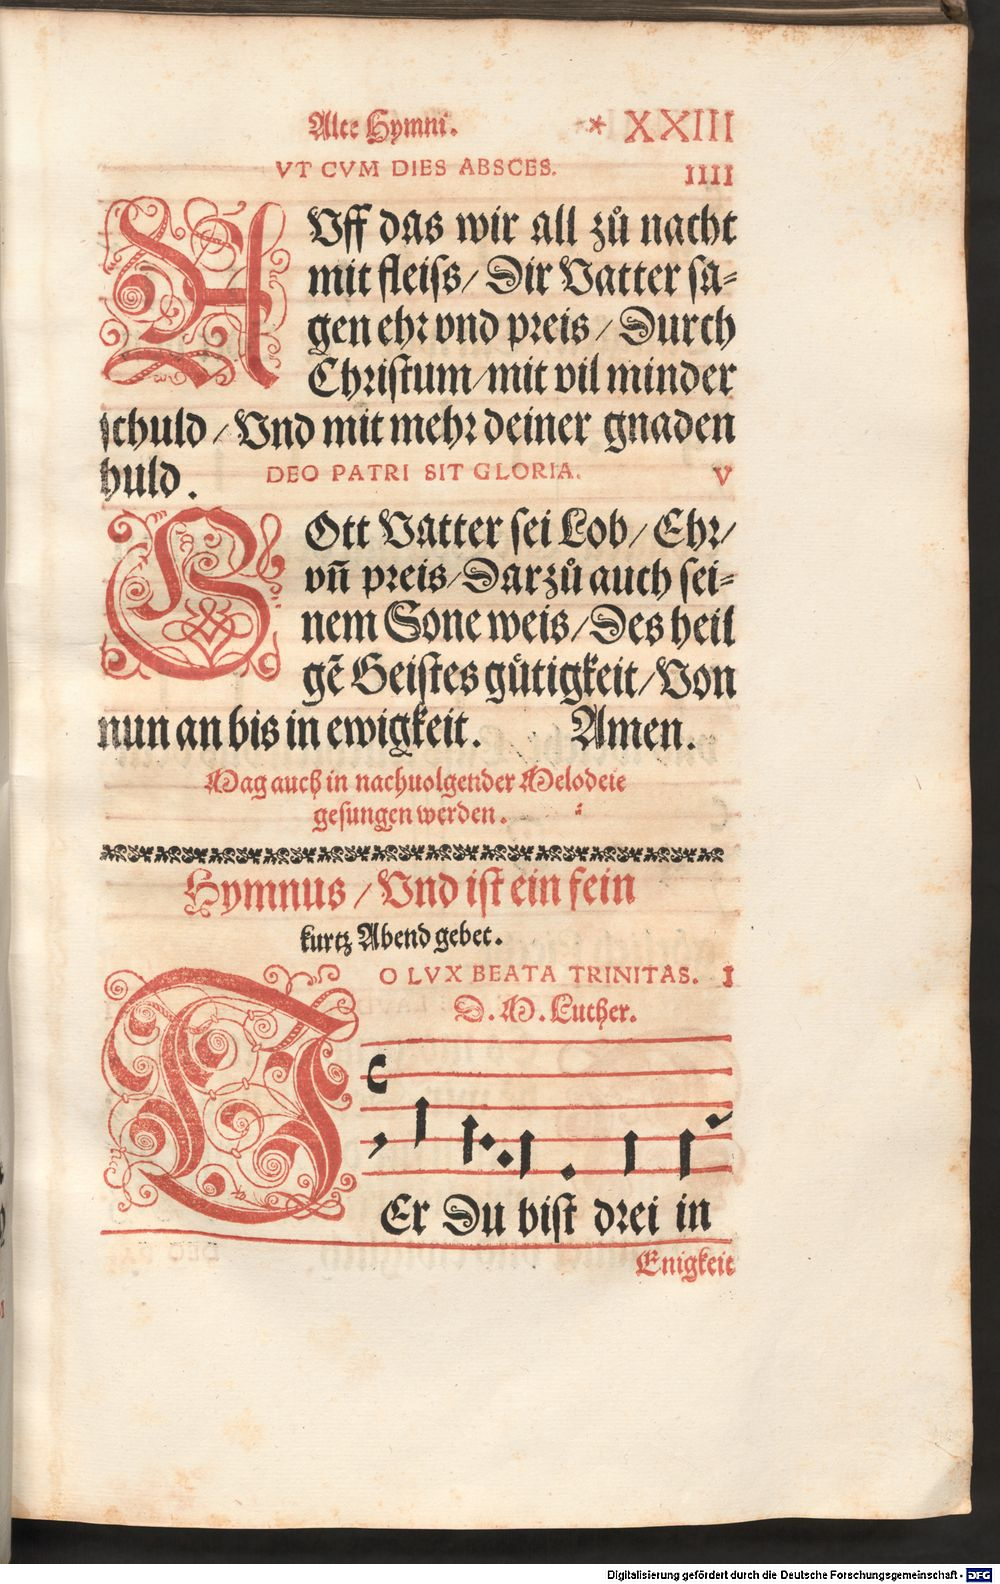 Alte Hymni. * XXIII
VT CVM DIES ABSCES. IIII
AVff das wir all zů nacht
mit fleiſs/ Dir Vatter ſa-
gen ehꝛ vnd pꝛeis / Durch
Chꝛiſtum/mit vil minder
ſchuld / Vnd mit mehꝛ deiner gnaden
huld. DEO PATRI SIT GLORIA. V
GOtt Vatter ſei Lob/ Ehꝛ/
vñ pꝛeis/Darzů auch ſei-
nem Sone weis/Des heil
gẽ Geiſtes guͤtigkeit/Von
nun an bis in ewigkeit. Amen.
Mag auch in nachuolgender Melodeie
geſungen werden.
Hymnus / Vnd iſt ein fein
kurtz Abend gebet.
O LVX BEATA TRINITAS. I
D. M. Luther.
DEr Du biſt dꝛei in
Enigkeit
Digitalisierung gefördert durch die Deutsche Forschungsgemeinschaft - DFG